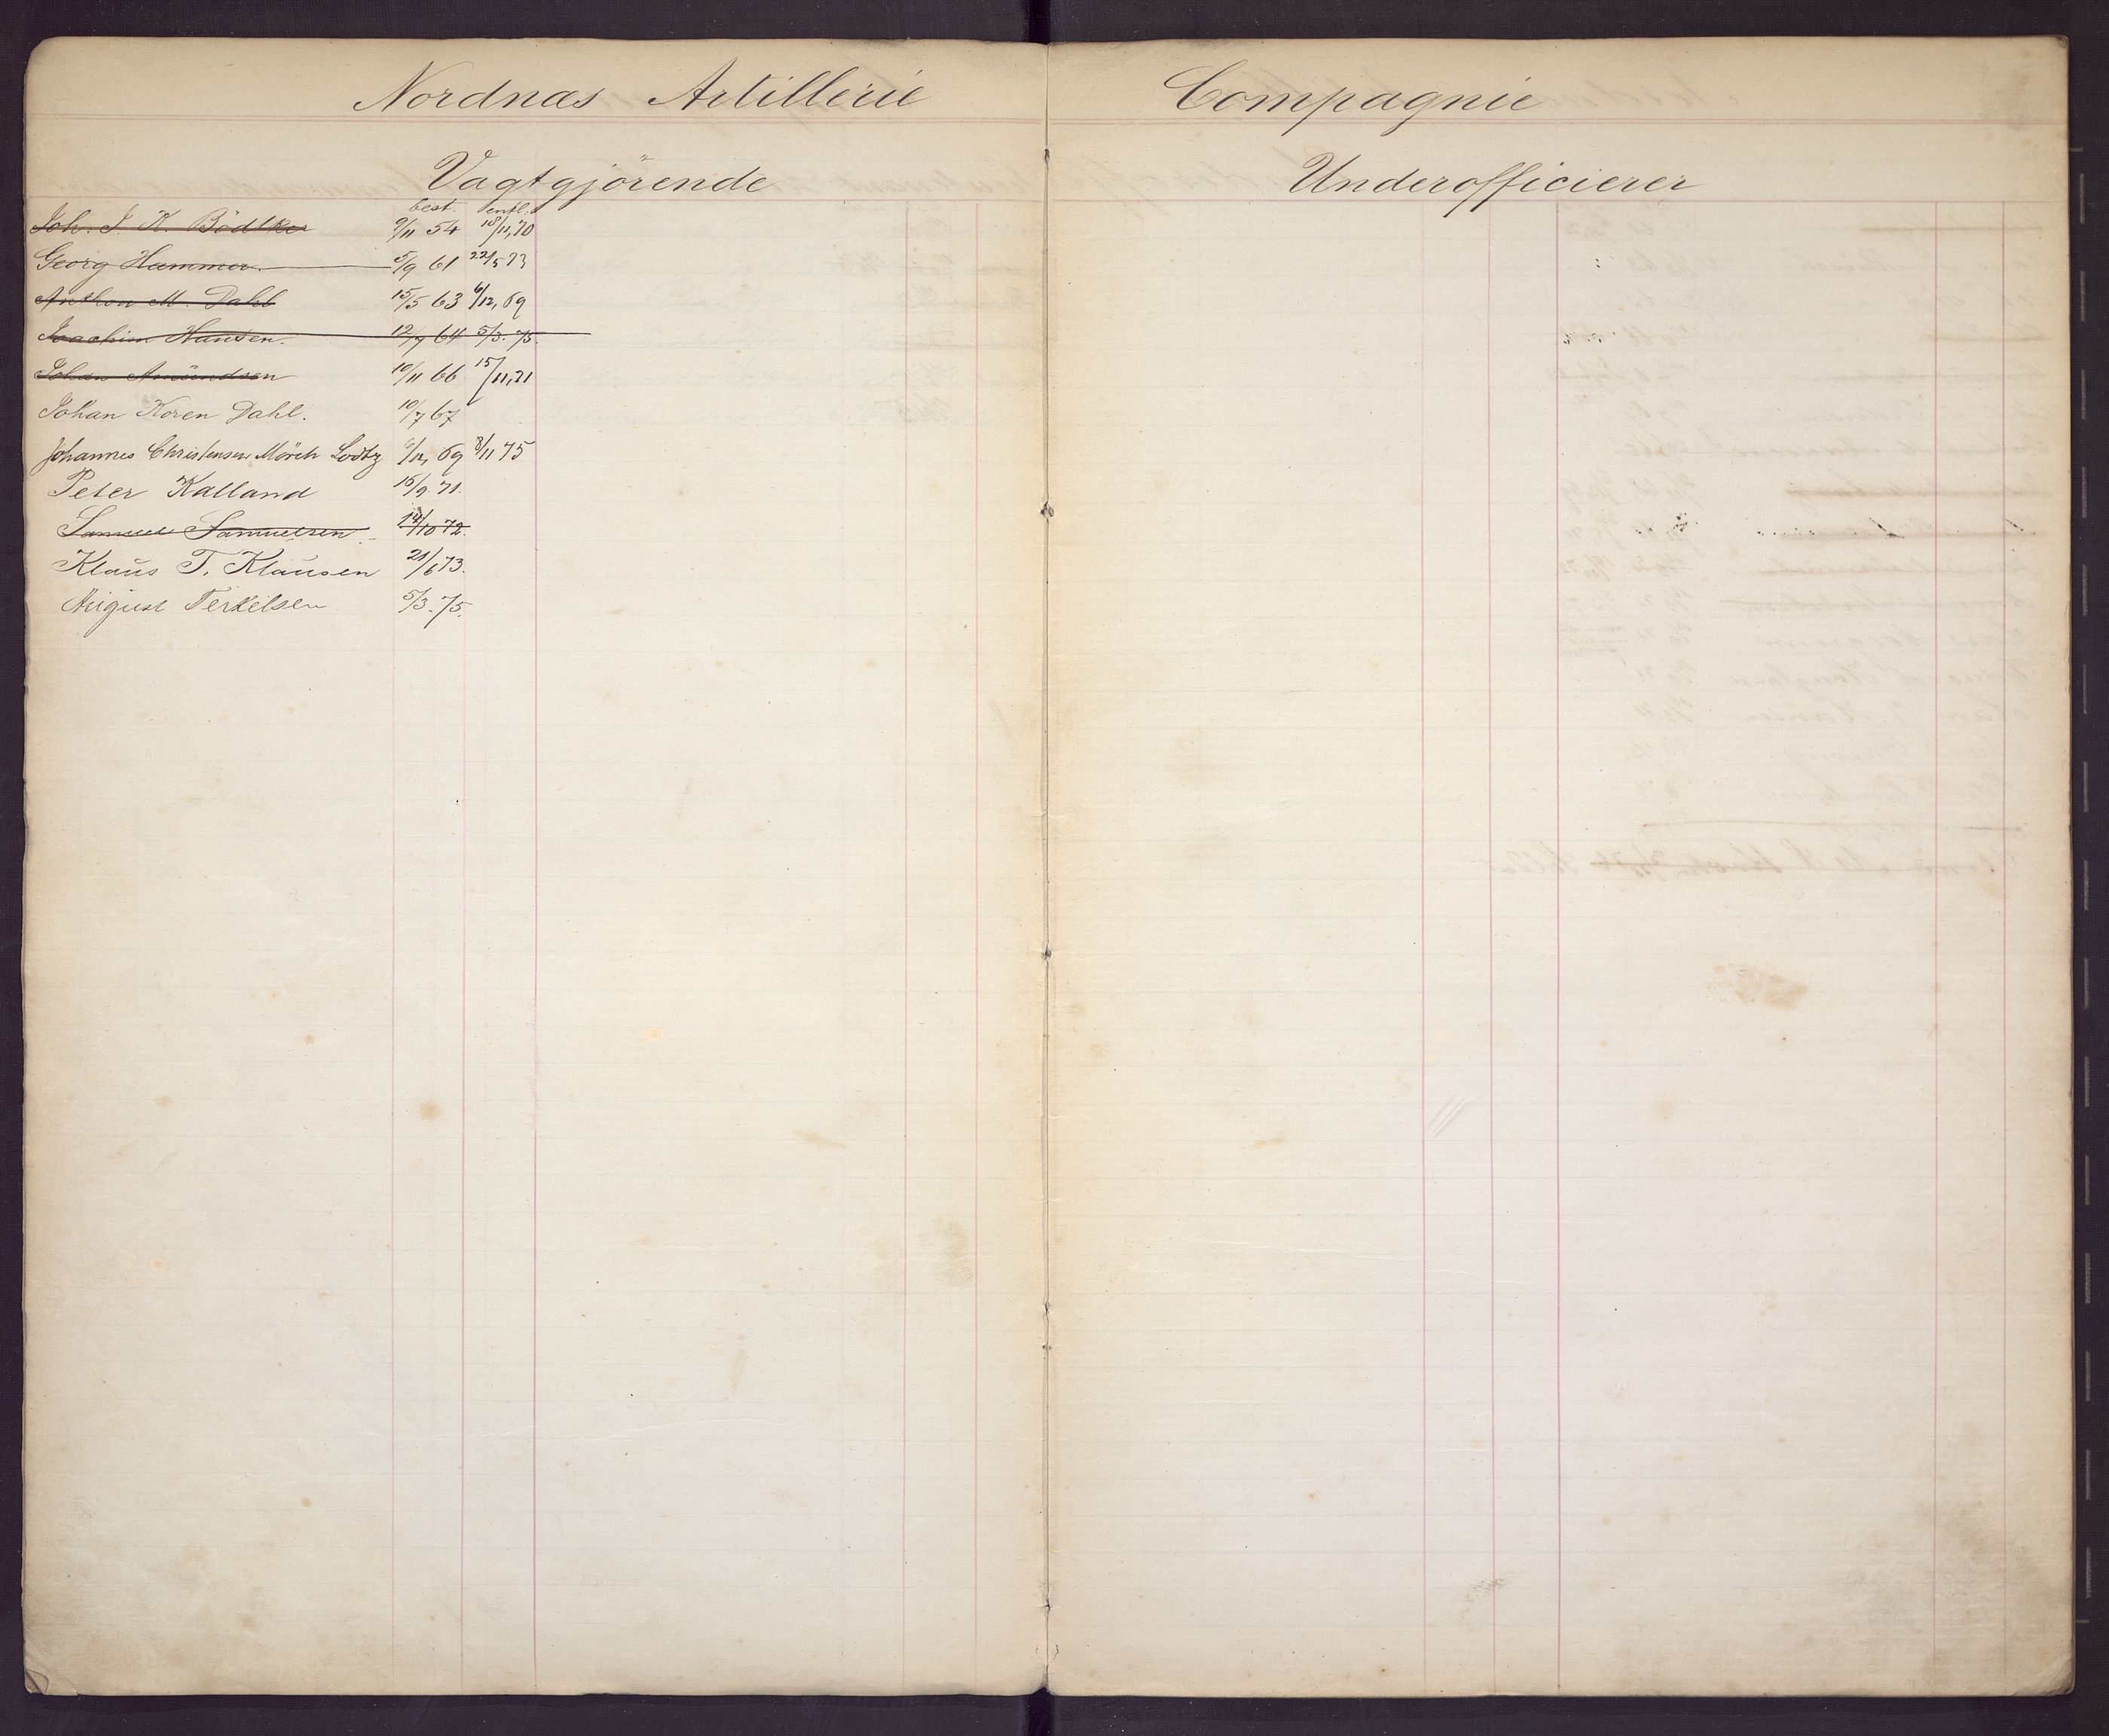 Nordnæs Artillerie Compagnie
Vagtgjörende Underofficierer
best. entl.
Joh. J. K. Bödtker 9/11 54 18/11,70
Georg Hammer. 5/9 61 22/5 73
Anthon M. Dahl 15/5 63 6/12,69
Joachim Hansen. 12/7 64 5/3. 75.
Johan Amündsen 10/11 66 15/11,71
Johan Koren Dahl. 10/7 67
Johannes Christensen Mörch Lodtz 6/12, 69 8/11 75
Peter Kalland 16/9. 71.
Samuel Samuelsen 14/10 72.
Klaüs T. Klaüsen 21/6 73.
Aügust Terkelsen 5/3. 75.